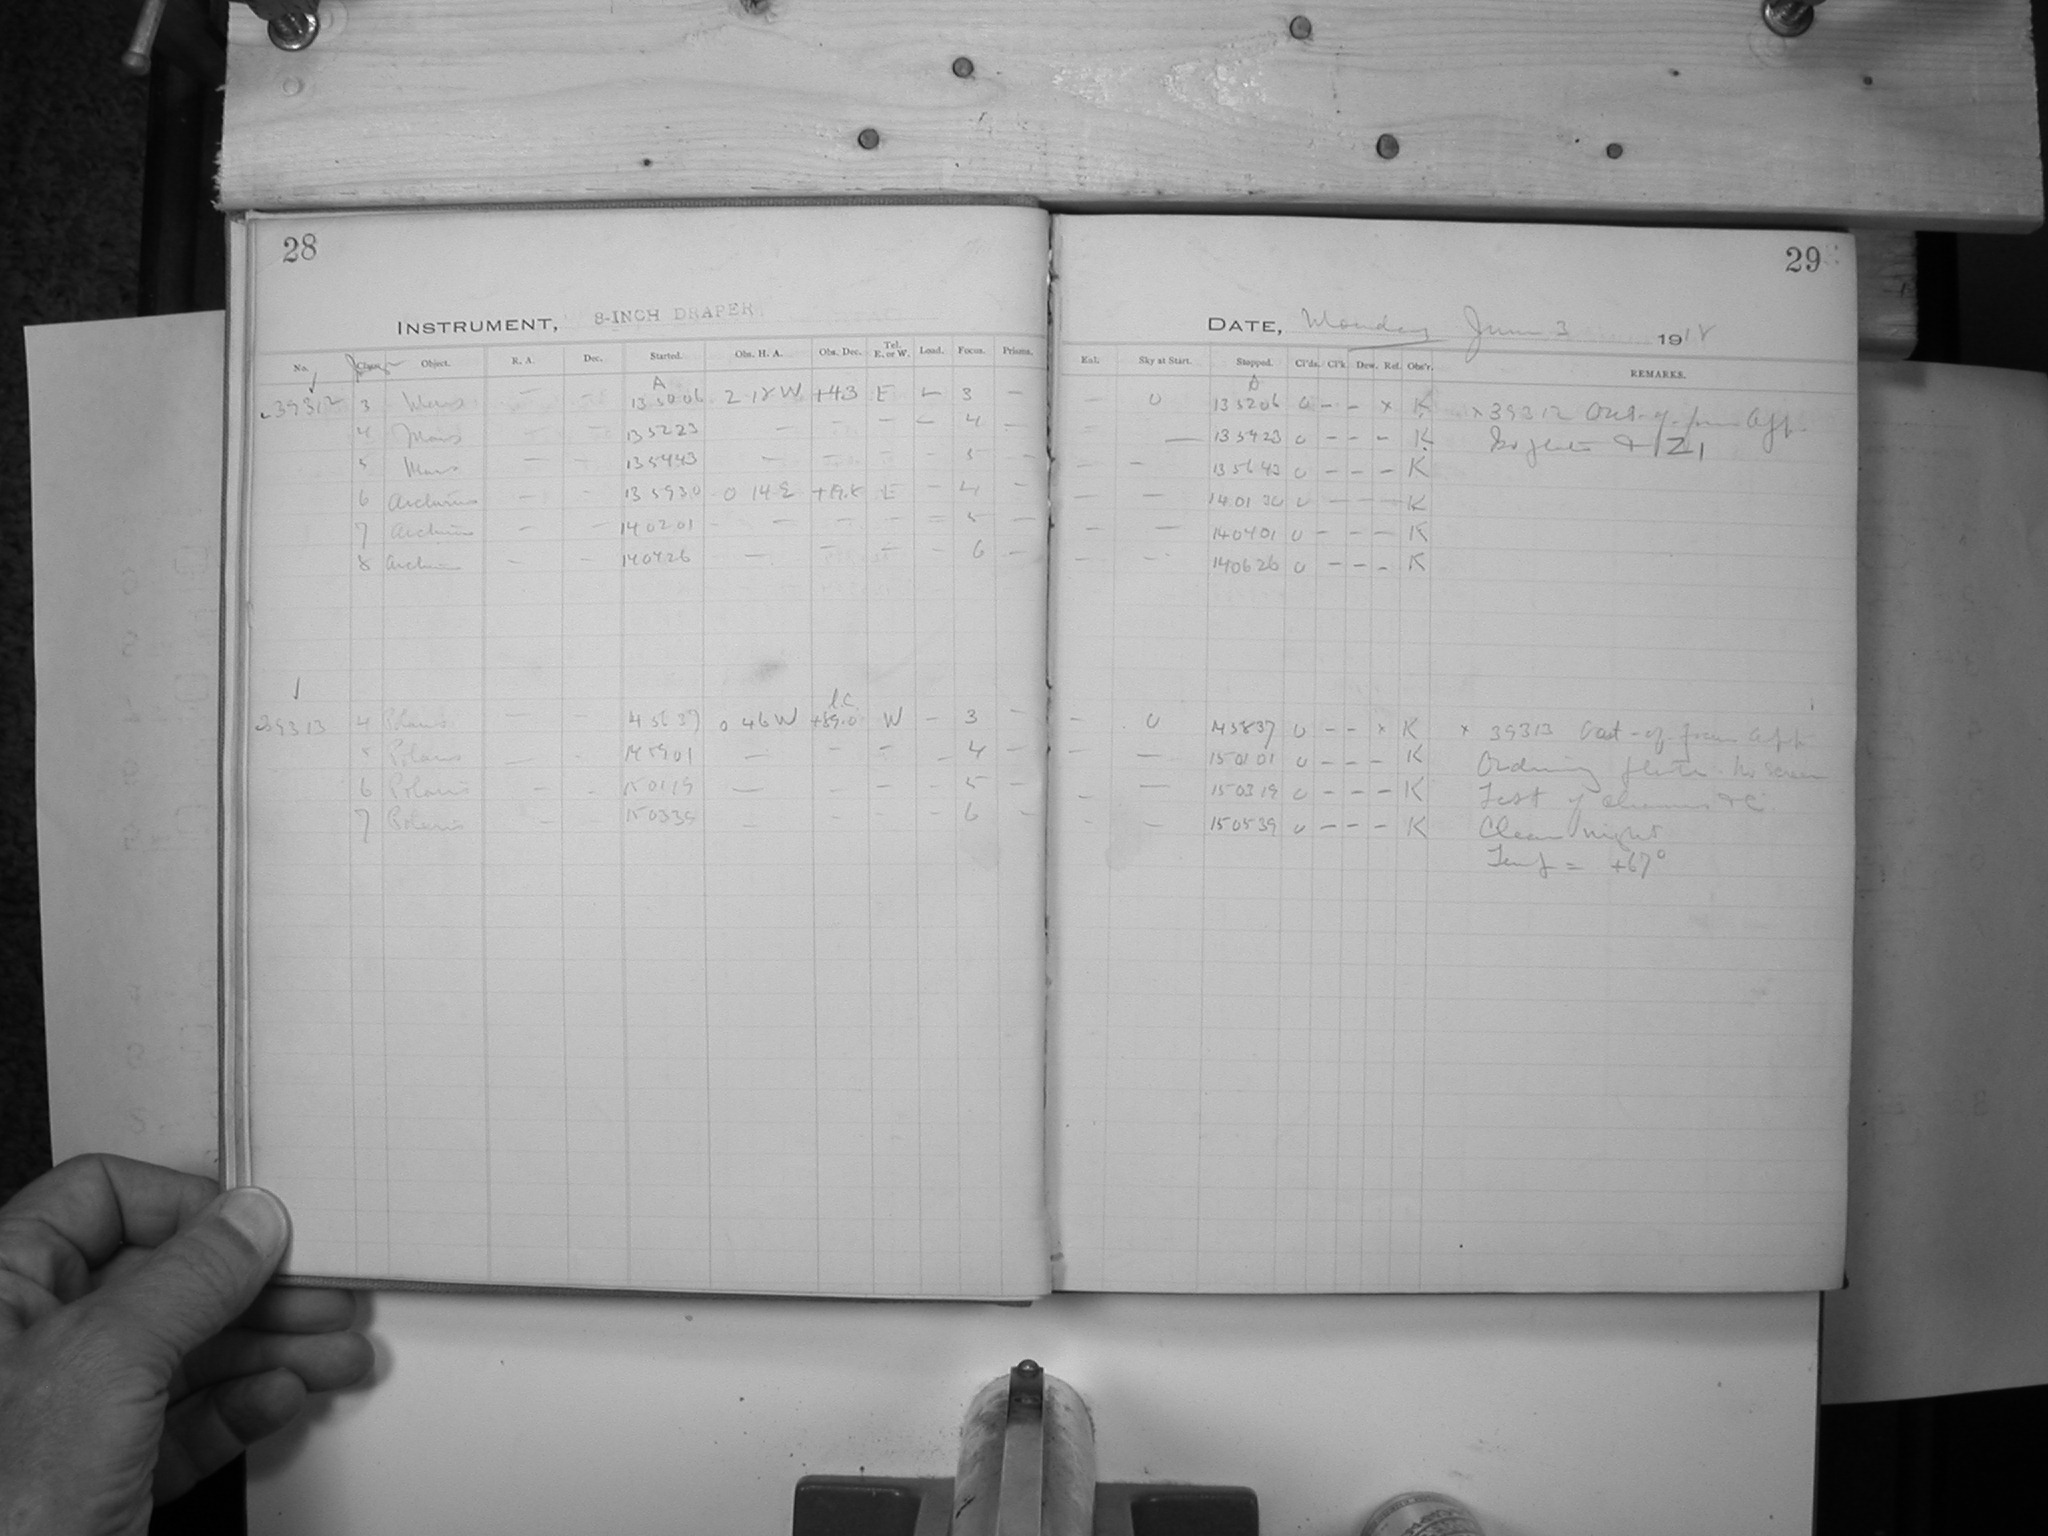 28
INSTRUMENT, 8-INCH DRAPER
No. Class Object. R. A. Dec. Started. Obs. H. A. Obs. Dec. Tel. E. or W. Load. Focus. Prisms.
A
39312 3 Mars — — 135006 2 18 W +4.3 E — 3 —
4 Mars — — 135223 — — — — 4 —
5 Mars — — 135443 — — — — 5 —
6 Arcturus — — 135930 0 14 E +19.8 E — 4 —
7 Arcturus — — 140201 — — — — 5 —
8 Arcturus — — 140426 — — — — 6 —
l.c.
39313 4 Polaris — — 145637 0 46 W +89.0 W — 3 —
5 Polaris — — 145901 — — — — 4 —
6 Polaris — — 150119 — — — — 5 —
7 Polaris — — 150339 — — — — 6 —
29
DATE, Monday June 3 1918
Ent. Sky at Start. Stopped. Cl'ds. Cl'k. Dew. Ref. Obs'r. REMARKS.
— 0 135206 0 — — x K x 39312 Out-of-focus App.
— — 135423 0 — — — K Iso plate + 121
— — 135642 0 — — — K
— — 140130 0 — — — K
— — 140401 0 — — — K
— — 140626 0 — — — K
— 0 145837 0 — — x K x 39313 Out-of-focus App.
— — 150101 0 — — — K Ordinary plate. No screen
— — 150319 0 — — — K Test of
— — 150539 0 — — — K Clear night
Temp = +67°